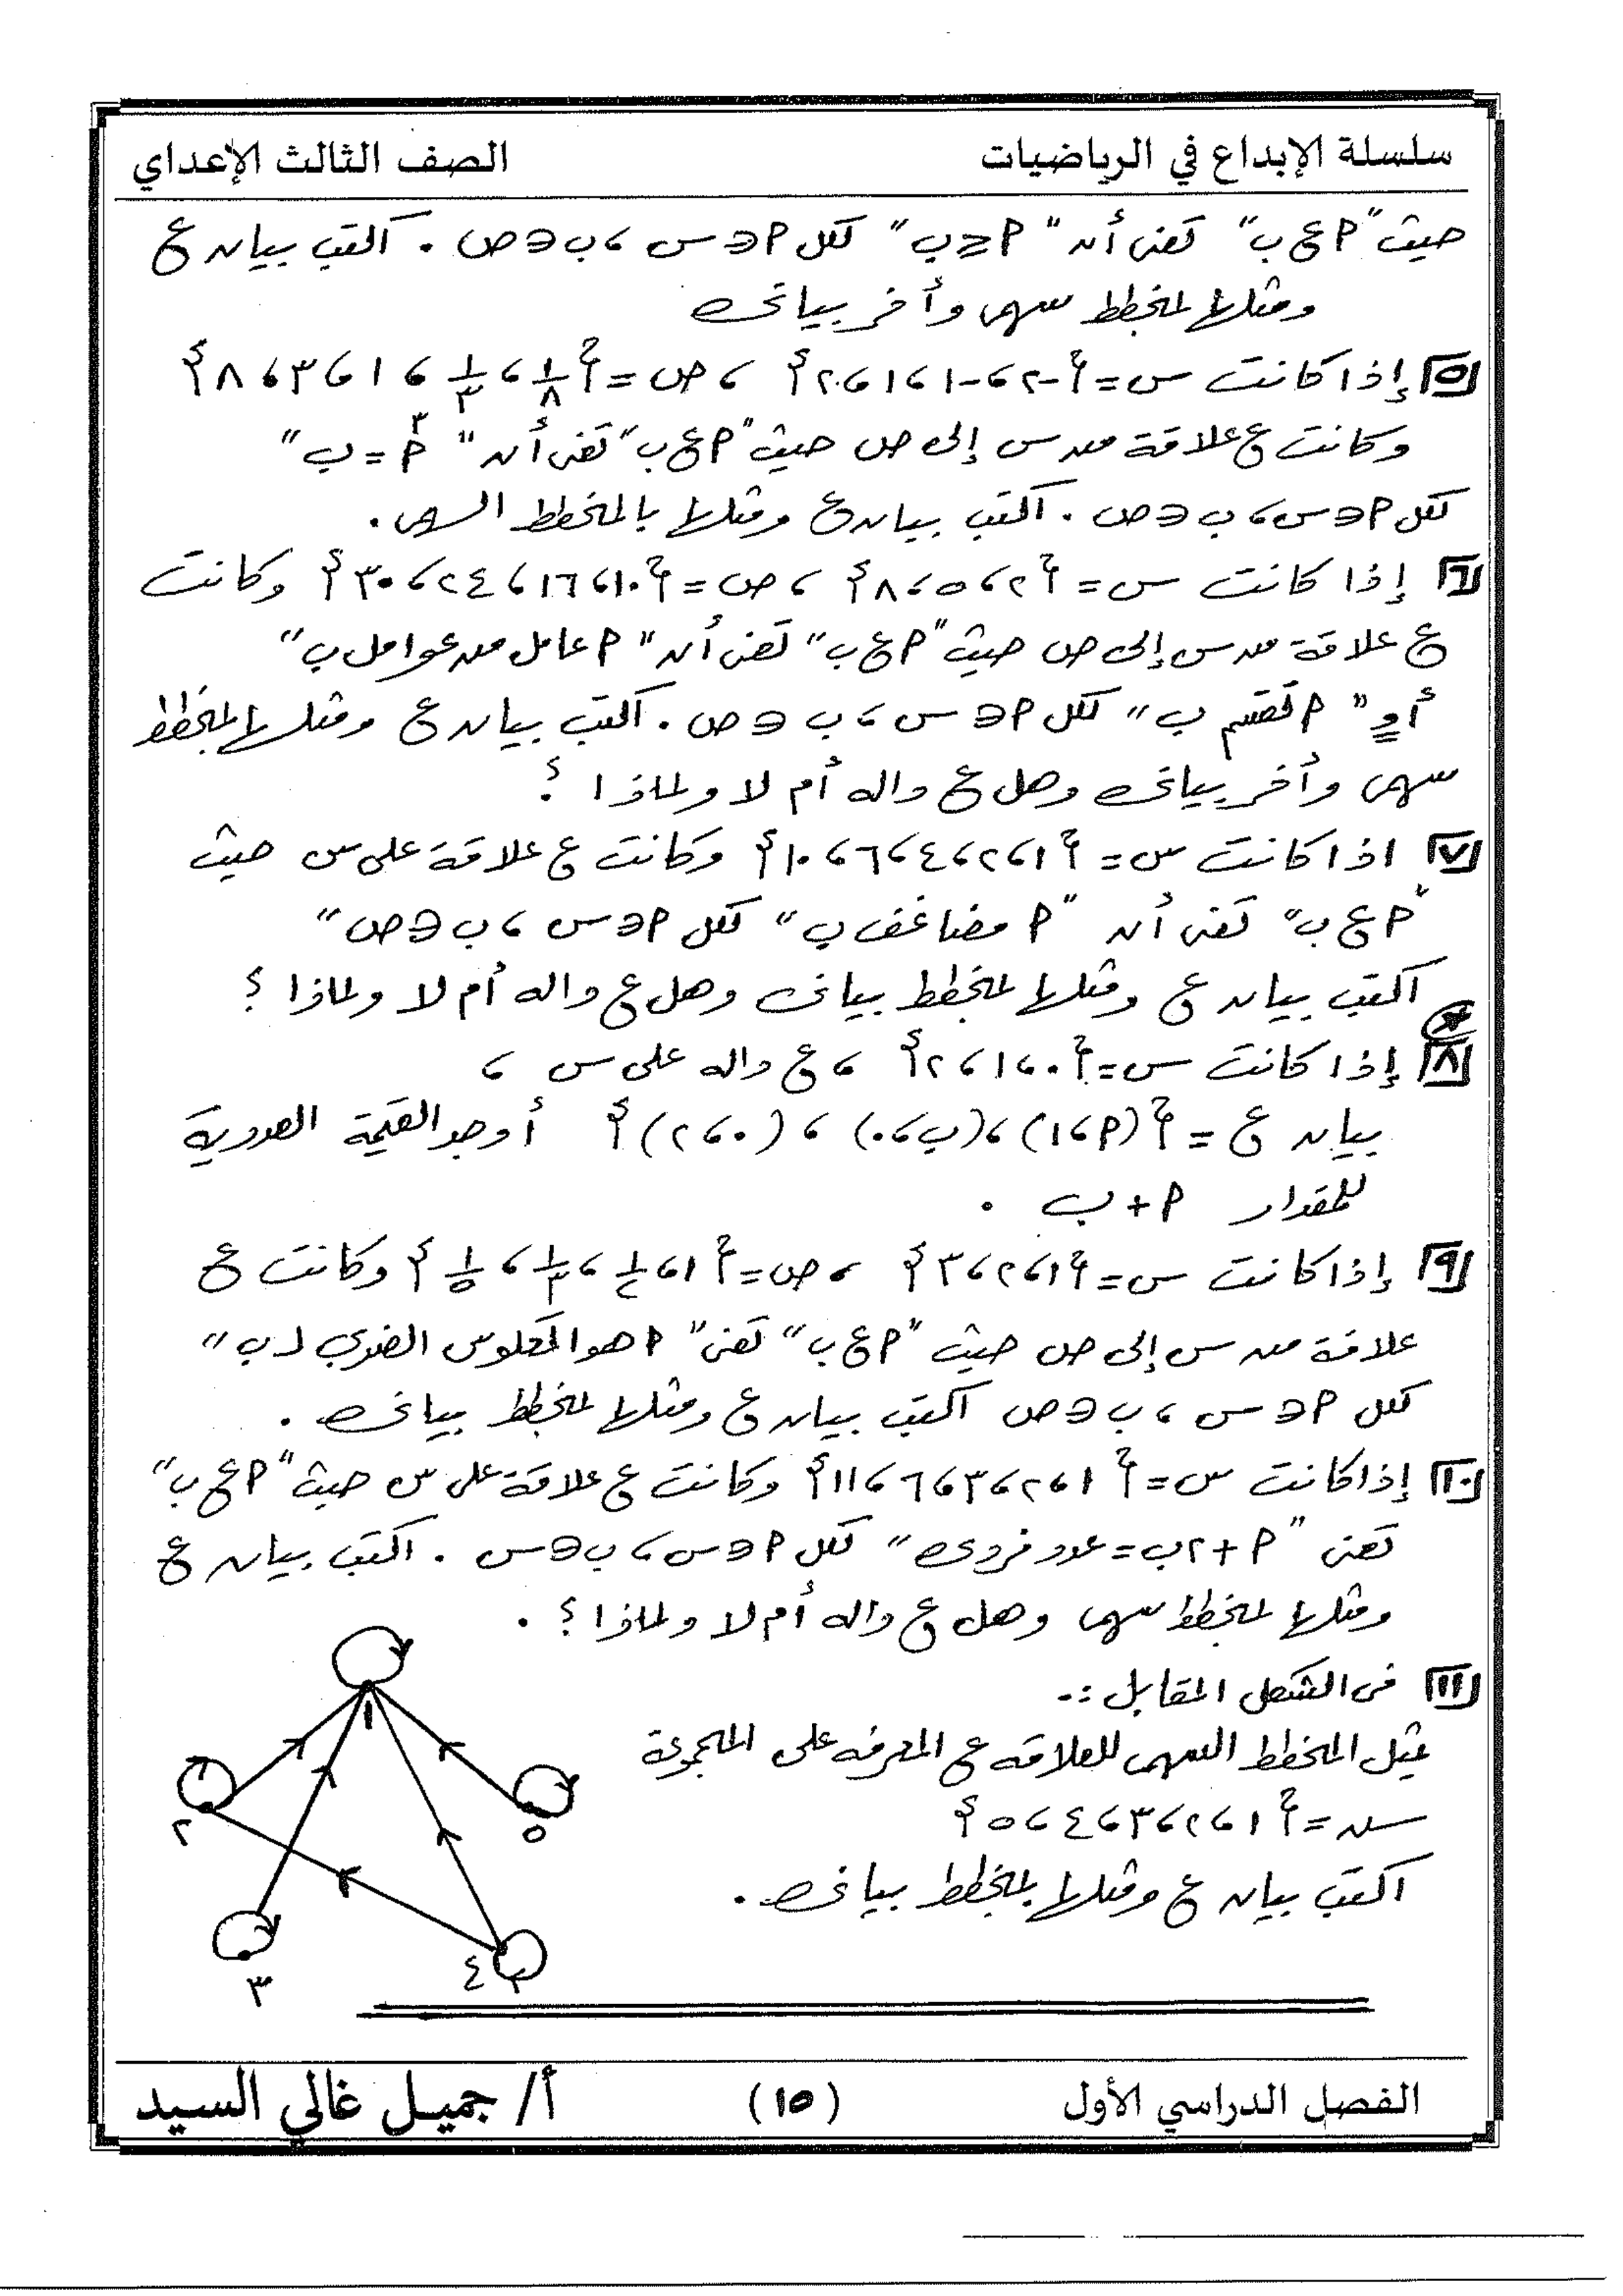 سلسلة الإبداع في الرياضيات
الصف الثالث الإعداي
حيث "أ ع ب" تعنى أن "أ ≥ ب" لكل أ ∈ س ، ب ∈ ص . اكتب بيان ع
ومثلها بمخطط سهمى وأخر بيانى
[٥] إذا كانت س = {-٢ ، -١ ، ١ ، ٢} ، ص = {١/٨ ، ١/٣ ، ١ ، ٣ ، ٨}
وكانت ع علاقة من س إلى ص حيث "أ ع ب" تعنى أن "أ٣ = ب"
لكل أ ∈ س ، ب ∈ ص . اكتب بيان ع ومثلها بالمخطط السهمى .
[٦] إذا كانت س = {٢ ، ٥ ، ٨} ، ص = {١٠ ، ١٦ ، ٢٤ ، ٣٠} وكانت
ع علاقة من س إلى ص حيث "أ ع ب" تعنى أن "أ عامل من عوامل ب"
أو "أ تقسم ب" لكل أ ∈ س ، ب ∈ ص . اكتب بيان ع ومثلها بمخطط
سهمى وأخر بيانى وهل ع داله أم لا ولماذا ؟
[٧] اذا كانت س = {١ ، ٢ ، ٤ ، ٦ ، ١٠} وكانت ع علاقة على س حيث
"أ ع ب" تعنى أن "أ مضاعف ب" لكل أ ∈ س ، ب ∈ ص"
اكتب بيان ع ومثلها بمخطط بيانى وهل ع داله أم لا ولماذا ؟
[٨] إذا كانت س = {٠ ، ١ ، ٢} ، ع داله على س ،
بيان ع = {(أ ، ١) ، (ب ، ٠) ، (٠ ، ٢)} أوجد القيمة العددية
للمقدار أ + ب .
[٩] إذا كانت س = {١ ، ٢ ، ٣} ، ص = {١ ، ١/٢ ، ١/٣ ، ١/٥} وكانت ع
علاقة من س إلى ص حيث "أ ع ب" تعنى "أ هو المعكوس الضربي لـ ب"
لكل أ ∈ س ، ب ∈ ص اكتب بيان ع ومثلها بمخطط بيانى .
[١٠] إذا كانت س = {١ ، ٢ ، ٣ ، ٦ ، ١١} وكانت ع علاقة على س حيث "أ ع ب"
تعنى "أ + ٢ب = عدد فردى" لكل أ ∈ س ، ب ∈ س . اكتب بيان ع
ومثلها بمخطط سهمى وهل ع داله أم لا ولماذا ؟ .
[١١] فى الشكل المقابل :-
يمثل المخطط السهمى للعلاقة ع المعرفه على المجموعة
س = {١ ، ٢ ، ٣ ، ٤ ، ٥}
اكتب بيان ع ومثلها بمخطط بيانى .
١
٢
٥
٣
٤
الفصل الدراسي الأول
(١٥)
أ/ جميل غالي السيد